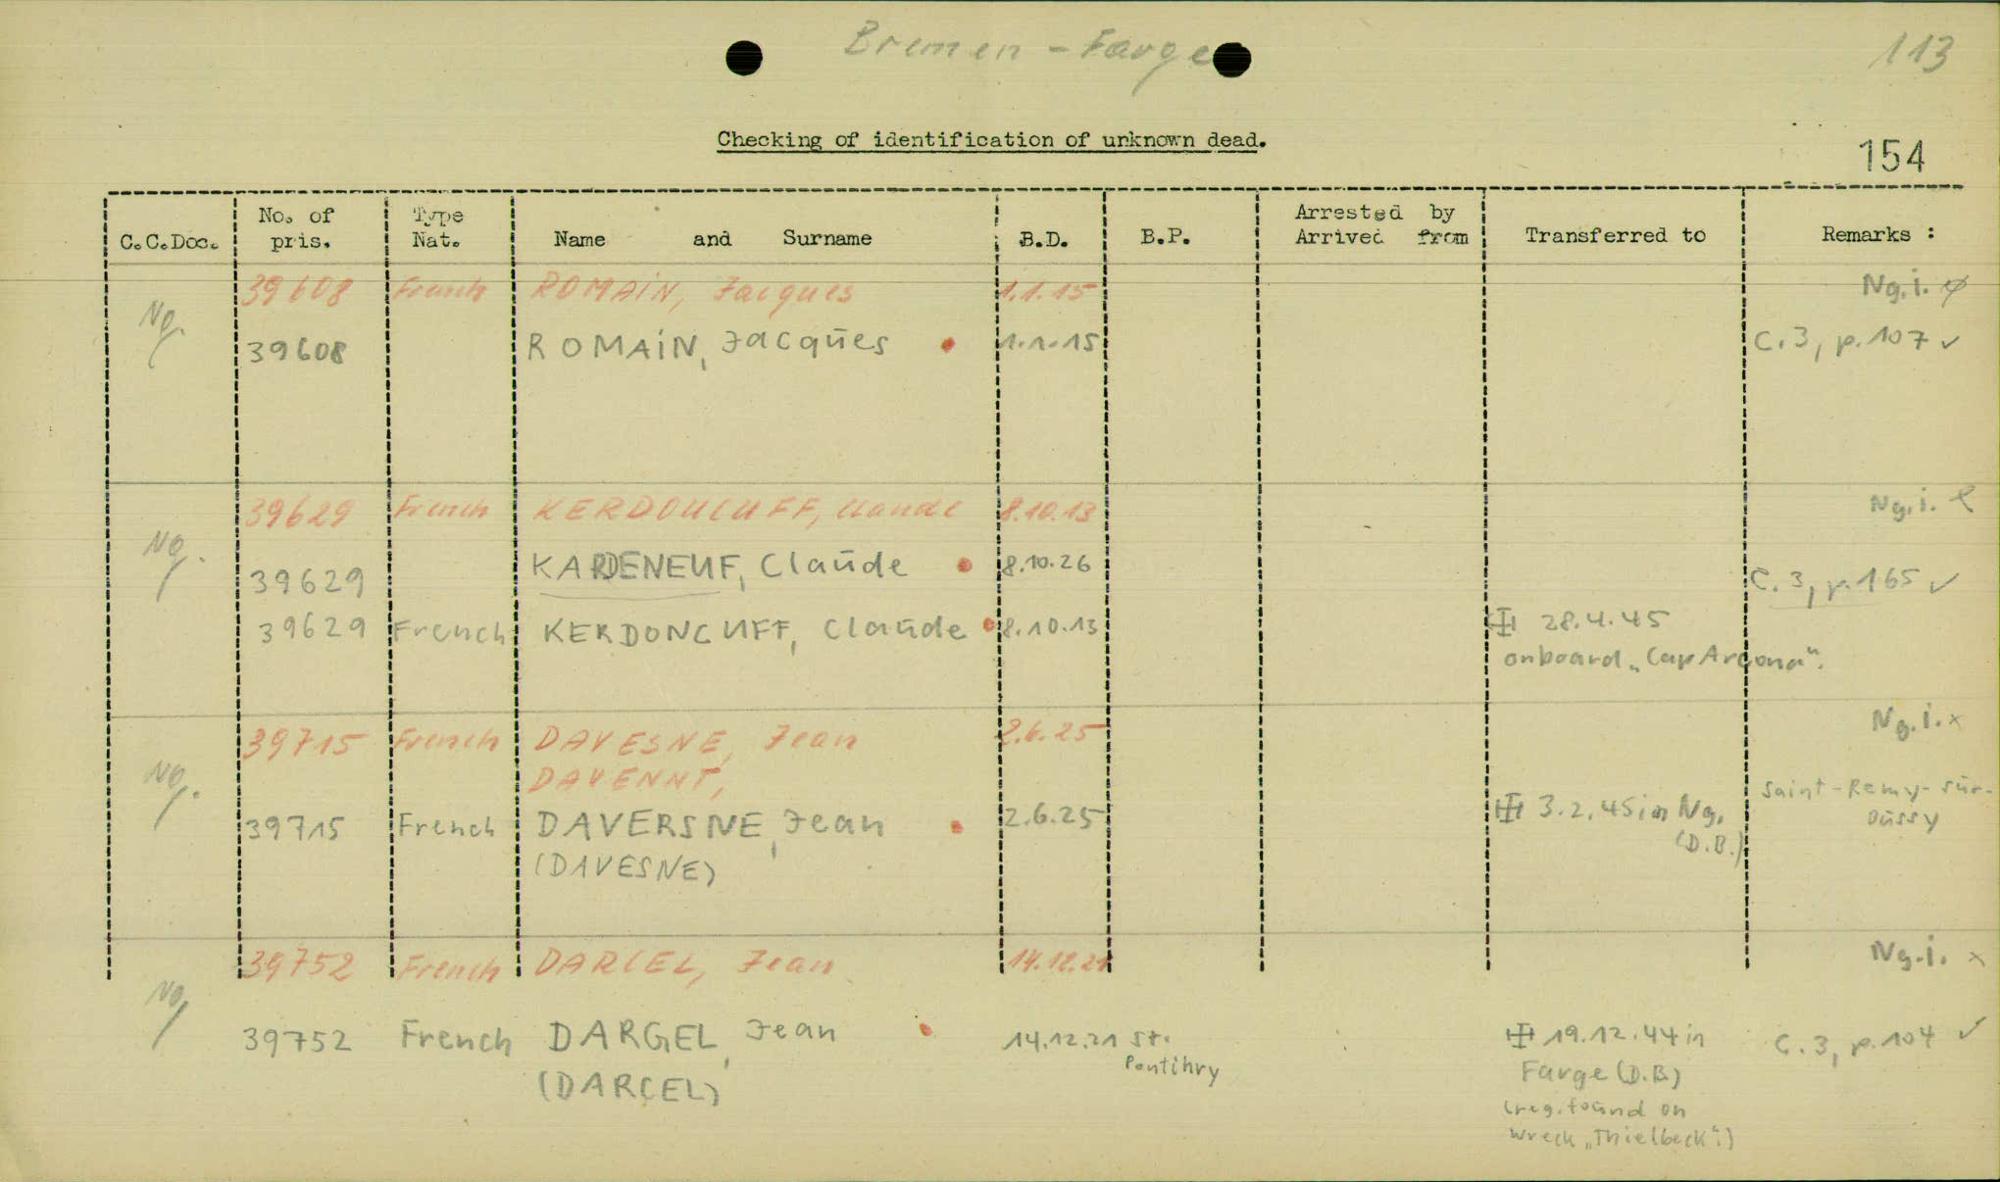 Bremen - Farge
113
Checking of identification of unknown dead.
154
C.C.Doc. No. of pris. Type Nat. Name and Surname B.D. B.P. Arrested by Arrived from Transferred to Remarks :
39608 French ROMAIN, Jacques 1.1.15 Ng.i.
Ng. 39608 ROMAIN, Jacques 1.1.15 C.3, p.107 ✓
39629 French KERDONCUFF, Claude 8.10.13 Ng.i.
Ng. 39629 KARDENEUF, Claude 8.10.26 C.3, p.165 ✓
39629 French KERDONCUFF, Claude 8.10.13 28.4.45
onboard „Cap Arcona".
39715 French DAVESNE, Jean 2.6.25 Ng.i. x
DAVENNT,
Ng. 39715 French DAVERSNE, Jean 2.6.25 3.2.45 in Ng. Saint-Remy-sur-
(DAVESNE) (D.B.)
39752 French DARCEL, Jean 14.12.21 Ng.i. x
Ng. 39752 French DARGEL, Jean 14.12.21 St. 19.12.44 in C.3, p.104 ✓
Pontihry Farge (D.B.)
(DARCEL) (reg. found on
wreck „Thielbeck".)